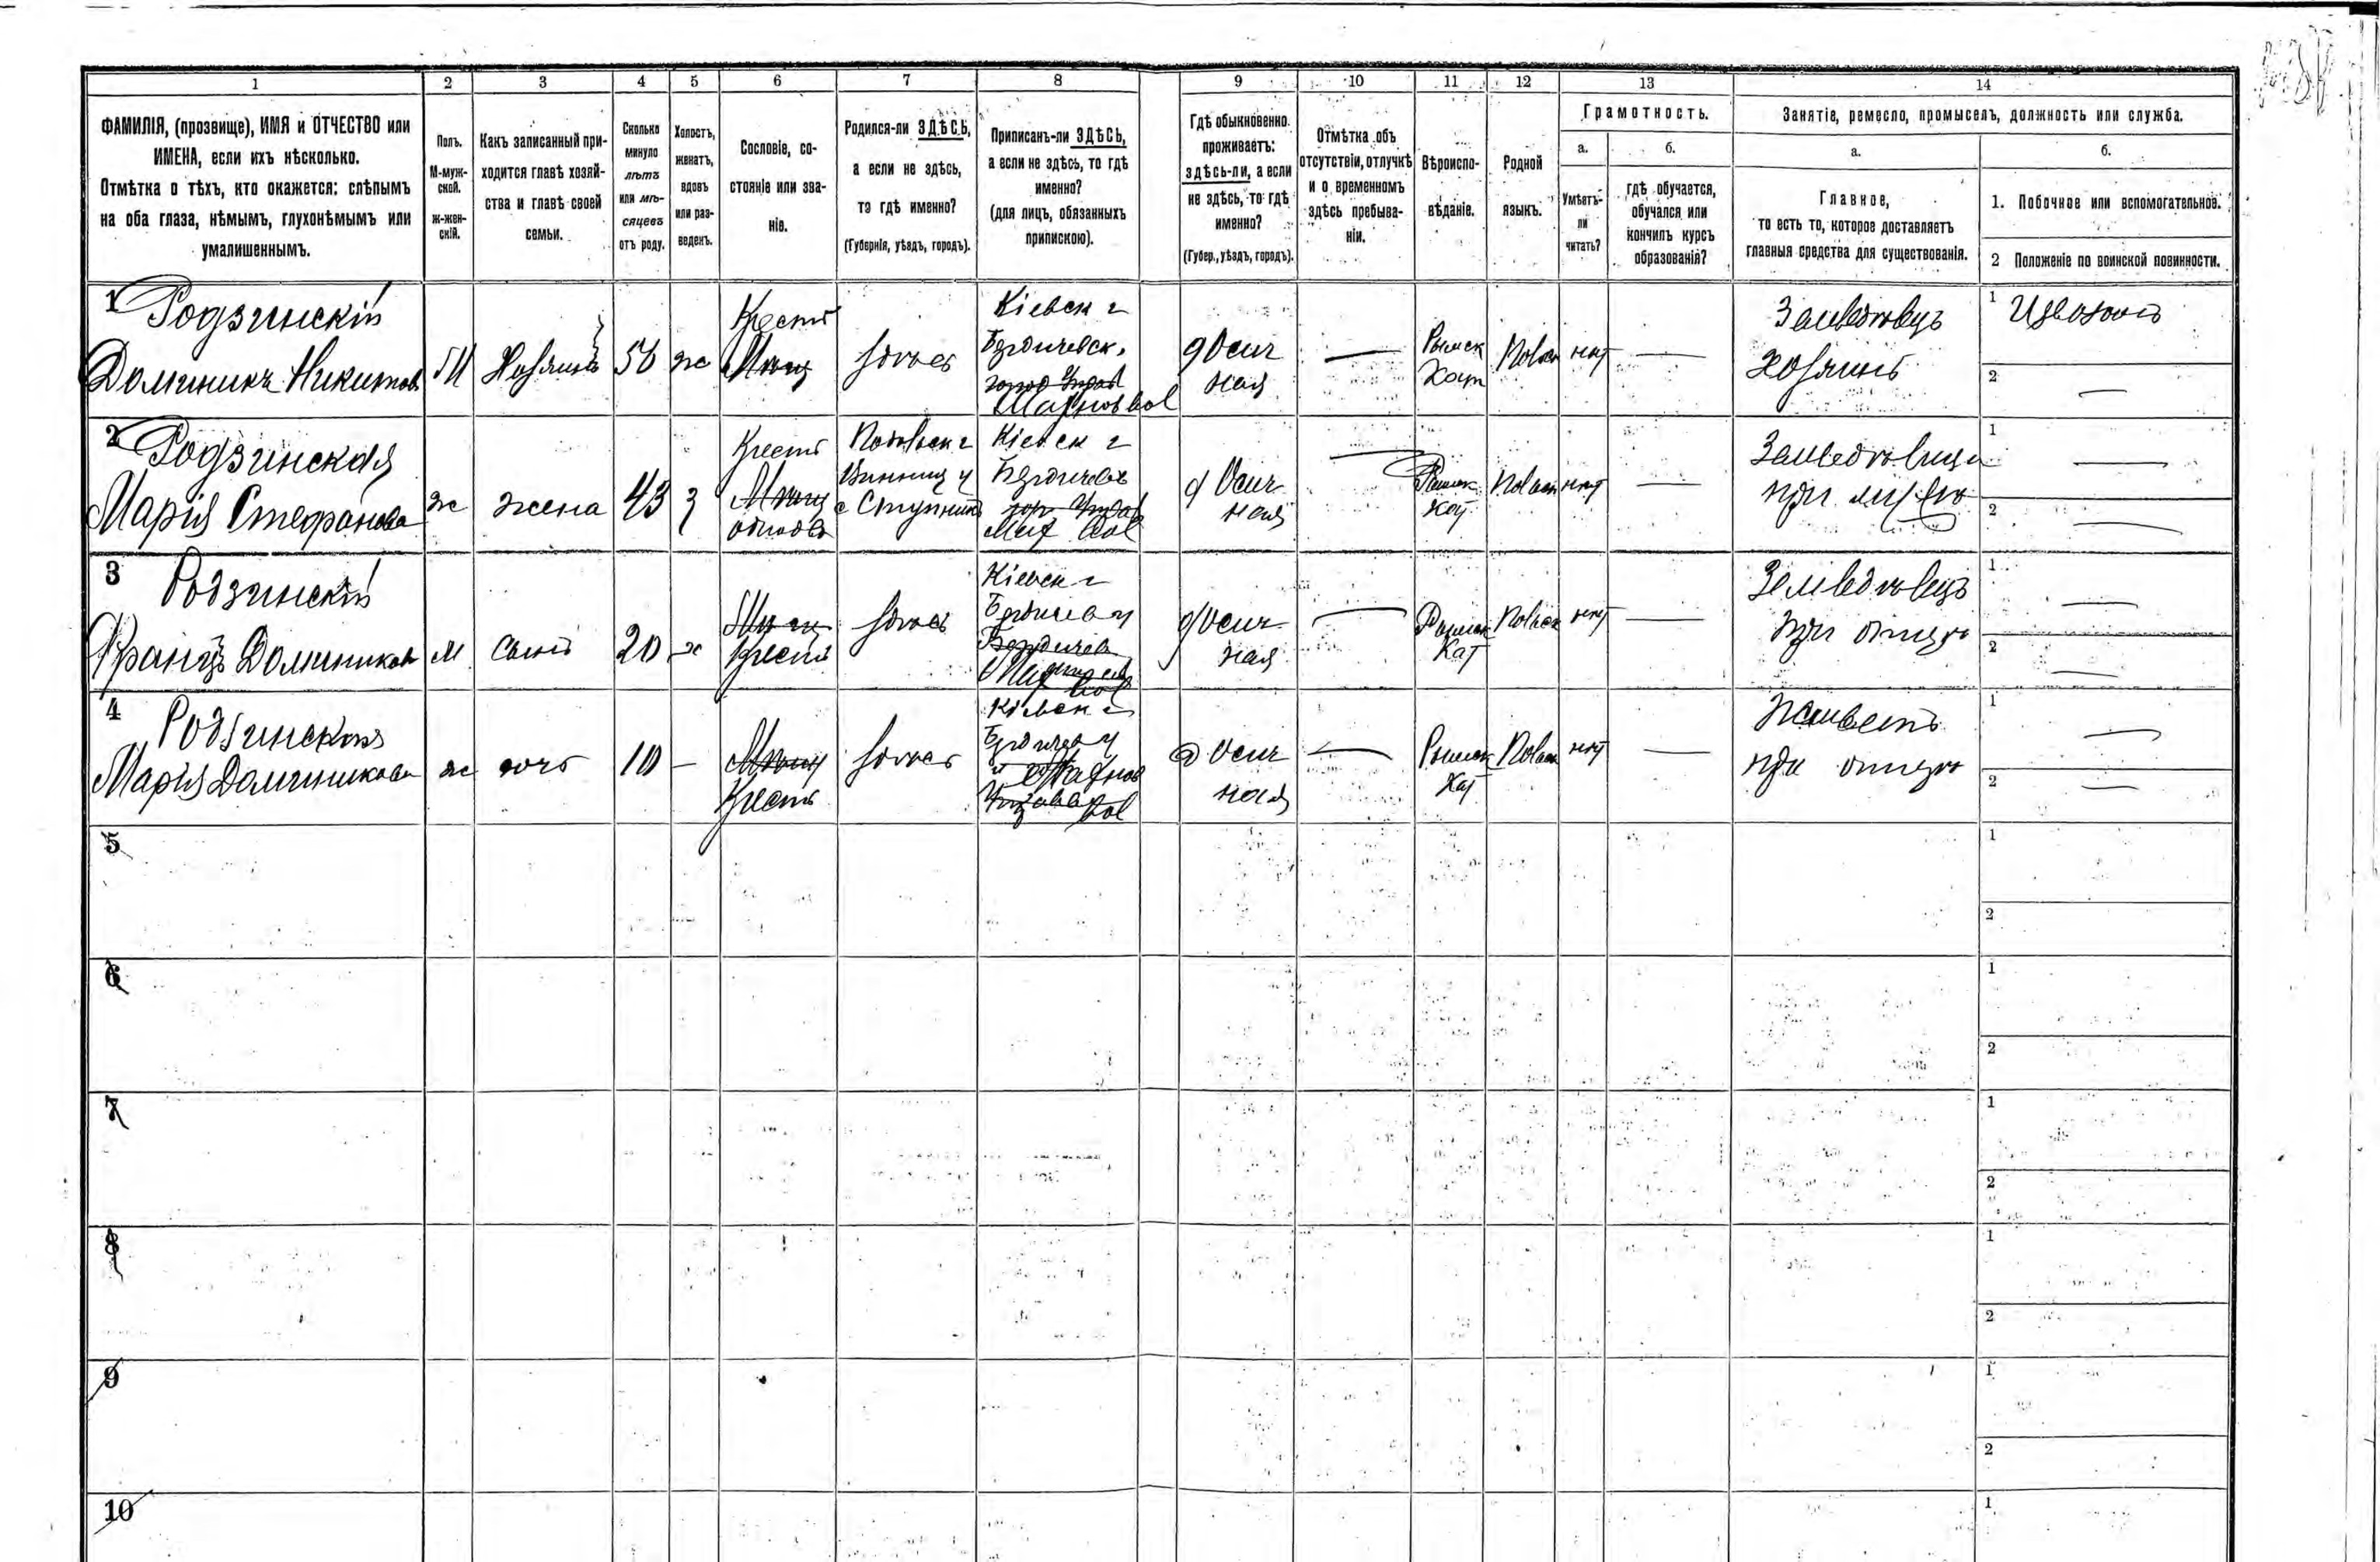 1
2
3
4
5
6
7
8
9
10
11
12
13
14
ФАМИЛІЯ, (прозвище), ИМЯ и ОТЧЕСТВО или
ИМЕНА, если ихъ нѣсколько.
Отмѣтка о тѣхъ, кто окажется: слѣпымъ
на оба глаза, нѣмымъ, глухонѣмымъ или
умалишеннымъ.
Полъ.
М-муж-
ской.
ж-жен-
скій.
Какъ записанный при-
ходится главѣ хозяй-
ства и главѣ своей
семьи.
Сколько
минуло
лѣтъ
или мѣ-
сяцевъ
отъ роду.
Холостъ,
женатъ,
вдовъ
или раз-
веденъ.
Сословіе, со-
стояніе или зва-
ніе.
Родился-ли ЗДѢСЬ,
а если не здѣсь,
то гдѣ именно?
(Губернія, уѣздъ, городъ).
Приписанъ-ли ЗДѢСЬ,
а если не здѣсь, то гдѣ
именно?
(для лицъ, обязанныхъ
припискою).
Гдѣ обыкновенно
проживаетъ:
здѣсь-ли, а если
не здѣсь, то гдѣ
именно?
(Губер., уѣздъ, городъ).
Отмѣтка объ
отсутствіи, отлучкѣ
и о временномъ
здѣсь пребыва-
ніи.
Вѣроиспо-
вѣданіе.
Родной
языкъ.
Грамотность.
а.
Умѣетъ-
ли
читать?
б.
гдѣ обучается,
обучался или
кончилъ курсъ
образованія?
Занятіе, ремесло, промыселъ, должность или служба.
а.
Главное,
то есть то, которое доставляетъ
главныя средства для существованія.
б.
1. Побочное или вспомогательное.
2 Положеніе по воинской повинности.
1 Родзинскій
Доминикъ Никитовъ
М
Хозяинъ
56
ж
Крест
здѣсь
Кіевск г
Бердичевск.
Махнов вол
Римск
Кат
Польск
нѣт
Земледѣлецъ
хозяинъ
1 Извозомъ
2
2 Родзинская
Марія Стефанова
ж
жена
43
з
Крест
Подольск г
Винниц у
с Ступник
Кіевск г
Бердичев
Мах вол
Римск
Кат
Польск
нѣт
при мужѣ
1
2
3 Родзинскій
Францъ Доминиковъ
м
сынъ
20
х
Крест
здѣсь
Кіевск г
Бердичев у
Мах вол
Римск
Кат
Польск
нѣт
Земледѣлецъ
при отцѣ
1
2
4 Родзинская
Марія Доминикова
ж
дочь
10
—
Крест
здѣсь
Кіевск г
Бердичев у
Махнов
вол
Римск
Кат
Польск
нѣт
Живетъ
при отцѣ
1
2
5
1
2
6
1
2
7
1
2
8
1
2
9
1
2
10
1